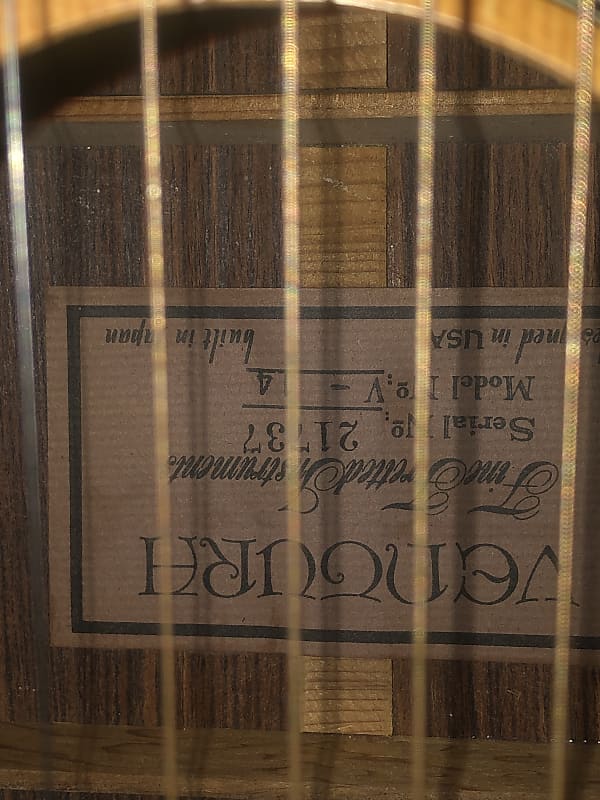 VENTURA
Fine Fretted Instruments
Serial Nº. 21737
Model Nº. V - 14
designed in USA built in Japan